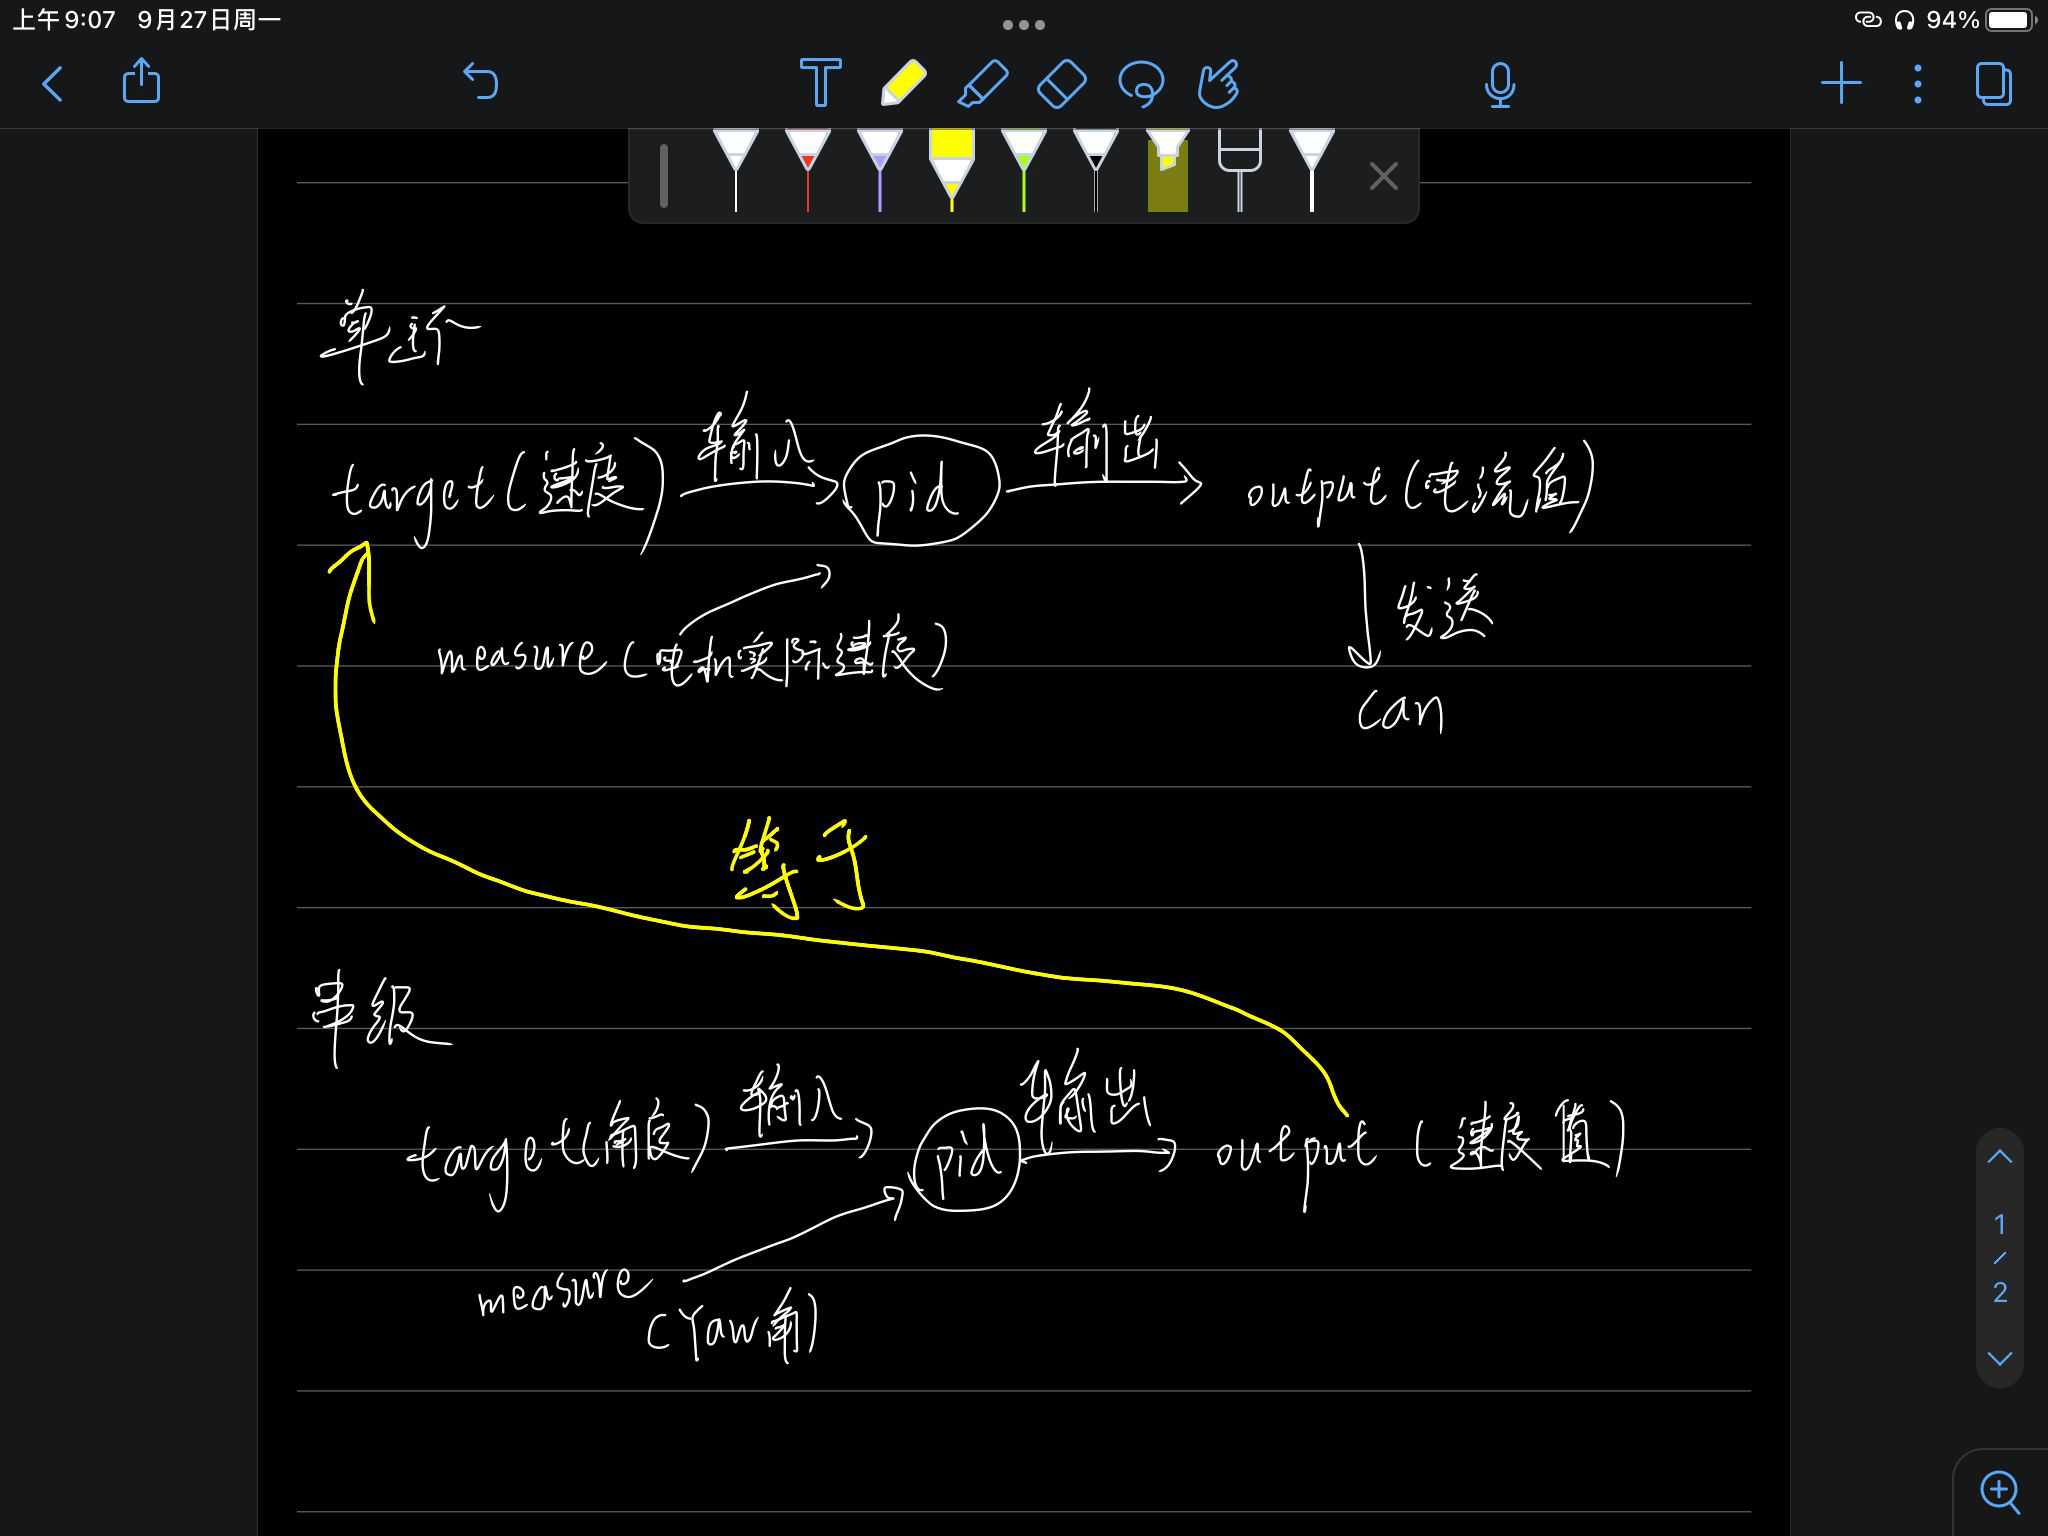 上午9:07 9月27日周一
94%
单
target(速度) 输入 pid 输出 output(电流值)
measure(电机实际速度)
发送
Can
等于
串级
target(角度) 输入 pid 输出 output (速度值)
measure
(Yaw角)
1
/
2